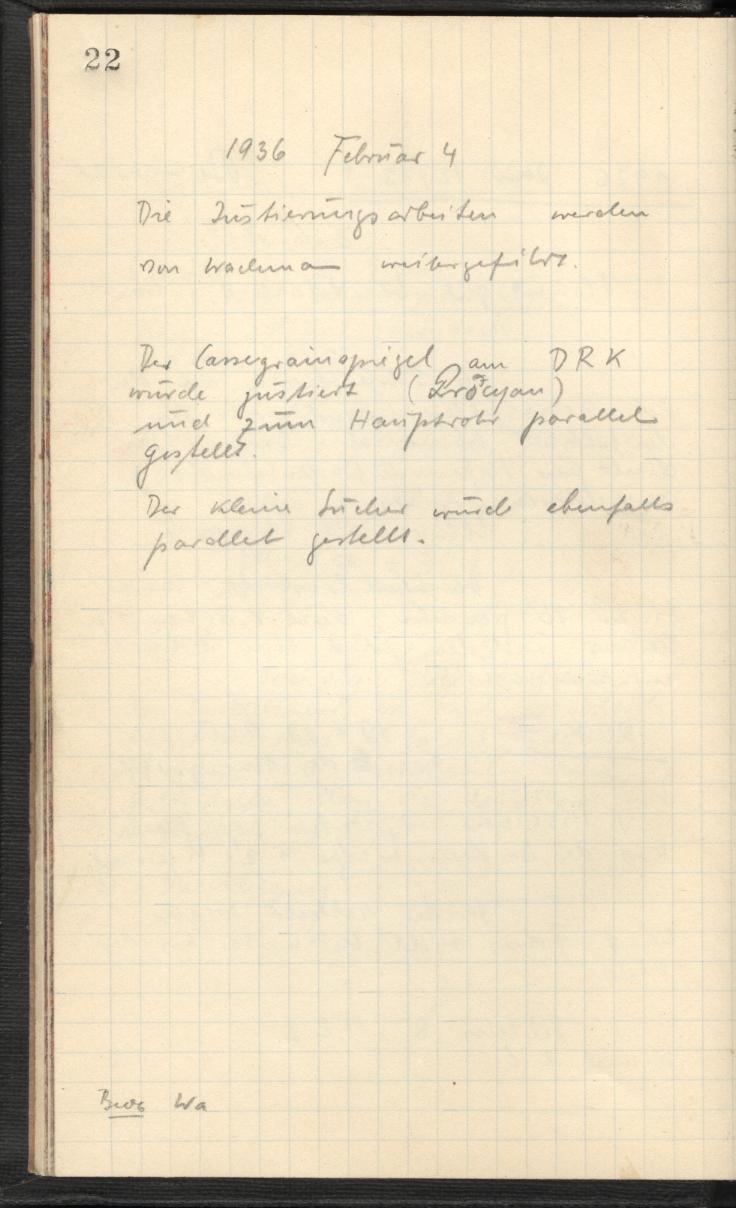 22
1936 Februar 4
Die Justierungsarbeiten werden
von Wachmann weitergeführt.
Der Cassegrainspiegel am DRK
wurde justiert (Procyon)
und zum Hauptrohr parallel
gestellt.
Der kleine Sucher wurde ebenfalls
parallel gestellt.
Beob Wa